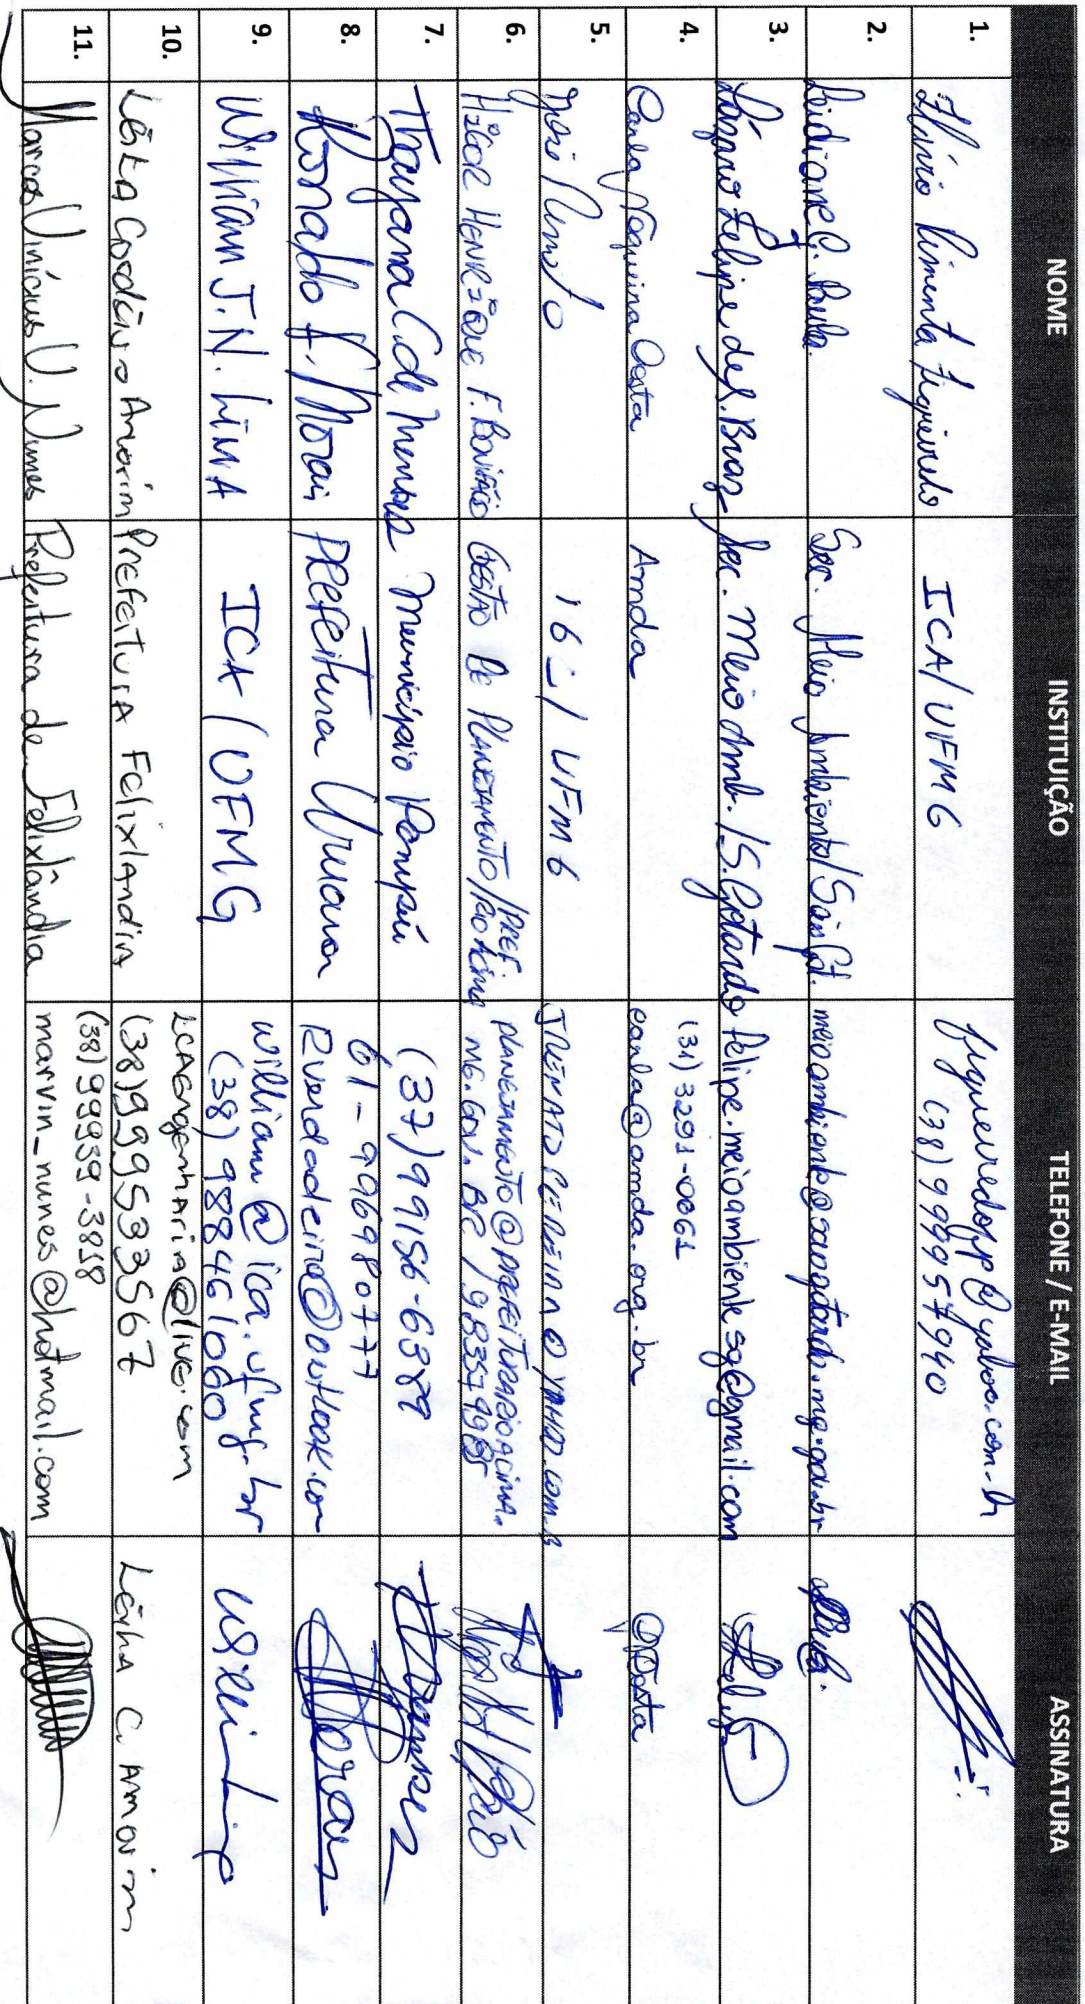 NOME INSTITUIÇÃO TELEFONE / E-MAIL ASSINATURA
1. Flávio Pimenta Figueiredo ICA/UFMG figueiredofp@yahoo.com.br
(38) 999957940
2. Lidiane C. Paula Sec. Meio Ambiente/São Got. meioambiente@saogotardo.mg.gov.br
3. Lázaro Felipe de S. Braz Sec. Meio Amb./S. Gotardo felipe.meioambientesg@gmail.com
4. Carla Nogueira Costa Amda (31) 3291-0661
carla@amda.org.br CNCosta
5. UFMG
6. HIGOR HENRIQUE F. BONIFÁCIO GESTÃO DE PLANEJAMENTO/PREF. RIO ACIMA PLANEJAMENTO@PREFEITURARIOACIMA.
MG.GOV.BR /
7. Thayana C. de Menezes Município Pompéu (37) 99156-6389
8. Ronaldo A. Morais PREFEITURA 61-996980777
Riverdadeiro@outlook.com
9. William J. N. LIMA ICA/UFMG william@ica.ufmg.br
(38) 988461060
10. Lêiha Cordeiro Amorim Prefeitura Felixlandia LCAEngenharia@live.com
(38) 999533567 Lêiha C. Amorim
11. Marcos Vinícius V. Nunes Prefeitura de Felixlândia (38) 99939-3858
marvin_nunes@hotmail.com